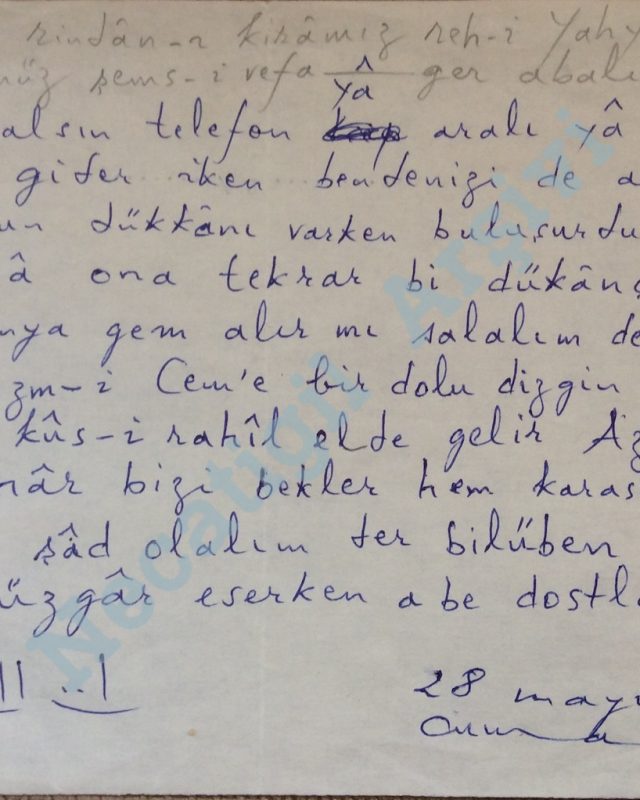 rindân-ı kirâmız reh-i Yahy
nüz şems-i vefa ger abalı
yâ
alsın telefon aralı yâ
gider iken bendenizi de a
un dükkânı varken buluşurdu
â ona tekrar bi dükânç
nya gem alır mı salalım de
zm-i Cem'e bir dolu dizgin
kûs-i rahîl elde gelir Az
nâr bizi bekler hem karas
şâd olalım ter bilüben
üzgâr eserken a be dostla
28 mayı
Necatigil Arşivi